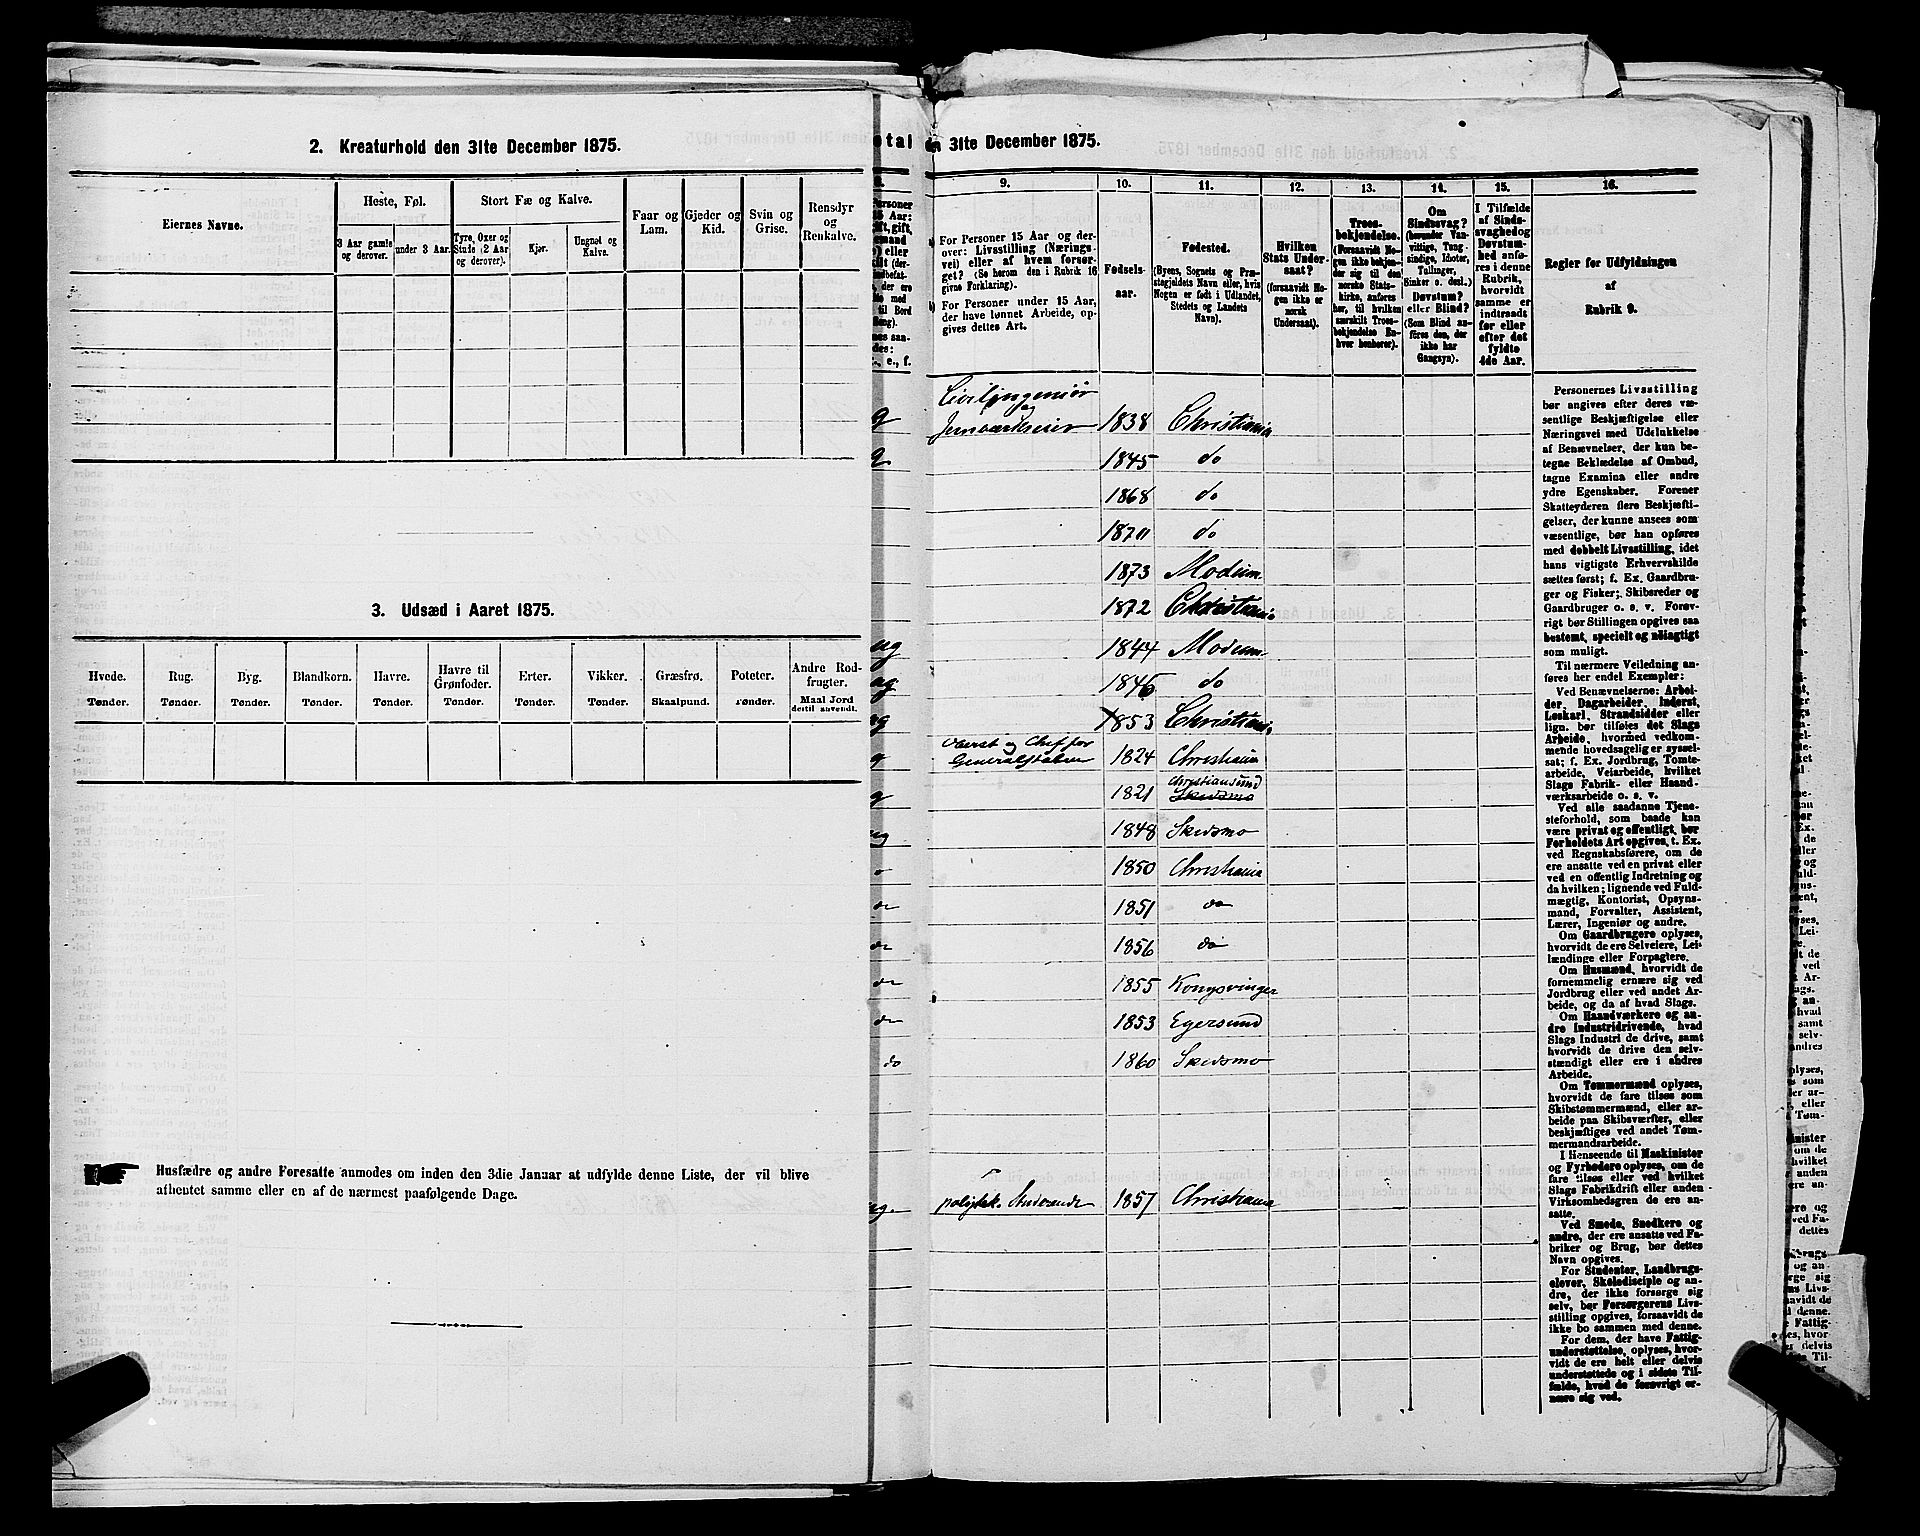 2. Kreaturhold den 31te December 1875.
Eiernes Navne.
Heste, Føl.
3 Aar gamle og derover.
under 3 Aar.
Stort Fæ og Kalve.
Tyre, Oxer og Stude (2 Aar og derover).
Kjør.
Ungnøt og Kalve.
Faar og Lam.
Gjeder og Kid.
Svin og Grise.
Rensdyr og Renkalve.
3. Udsæd i Aaret 1875.
Hvede. Tønder.
Rug. Tønder.
Byg. Tønder.
Blandkorn. Tønder.
Havre. Tønder.
Havre til Grønfoder. Tønder.
Erter. Tønder.
Vikker. Tønder.
Græsfrø. Skaalpund.
Poteter. Tønder.
Andre Rodfrugter. Maal Jord dertil anvendt.
Husfædre og andre Foresatte anmodes om inden den 3die Januar at udfylde denne Liste, der vil blive
afhentet samme eller en af de nærmest paafølgende Dage.
otal
den 31te December 1875.
9.
For Personer 15 Aar og derover: Livsstilling (Næringsvei) eller af hvem forsørget? (Se herom den i Rubrik 16 givne Forklaring).
b) For Personer under 15 Aar, der have lønnet Arbeide, opgives dettes Art.
10.
Fødselsaar.
11.
Fødested.
(Byens, Sognets og Præstegjeldets Navn eller, hvis Nogen er født i Udlandet, Stedets og Landets Navn).
12.
Hvilken Stats Undersaat?
(forsaavidt Nogen ikke er norsk Undersaat).
13.
Troesbekjendelse.
(Forsaavidt Nogen ikke bekjender sig til den norske Statskirke, anføres her, til hvilken særskilt Troesbekjendelse Enhver henhører).
14.
Om Sindssvag? (herunder Vanvittige, Tungsindige, Idioter, Tullinger, Sinker o. desl.) Døvstum? eller Blind? (Som Blind anføres den, der ikke har Gangsyn).
15.
I Tilfælde af Sindssvaghed og Døvstumhed anføres i denne Rubrik, hvorvidt samme er indtraadt før eller efter det fyldte 4de Aar.
16.
Regler for Udfyldningen
af
Rubrik 9.
Civilingeniør
og
Jernværkseier 1838 Christiania
1845 do
1868 do
1870 do
1873 Modum
1872 Christiania
ug 1844 Modum
ug 1846 do
ug 1853 Christiania
Oberst og Chef for
Generalstaben 1824 Christiania
Christiansund
1821 Skedsmo
ug 1848 Skedsmo
1850 Christiania
do 1851 do
do 1856 do
do 1855 Kongsvinger
do 1853 Egersund
do 1860 Skedsmo
ug. polytek. Studerande 1857 Christiania
Personernes Livsstilling
bør angives efter deres væ-
sentlige Beskjæftigelse eller
Næringsvei med Udelukkelse
af Benævnelser, der kun be-
tegne Beklædelse af Ombud,
tagne Examina eller andre
ydre Egenskaber. Forener
Skatteyderen flere Beskjæfti-
gelser, der kunne ansees som
væsentlige, bør han opføres
med dobbelt Livsstilling, idet
hans vigtigste Erhvervskilde
sættes først; f. Ex. Gaardbru-
ger og Fisker; Skibsreder og
Gaardbruger o. s. v. Forøv-
rigt bør Stillingen opgives saa
bestemt, specielt og nøiagtigt
som muligt.
Til nærmere Veiledning an-
føres her endel Exempler:
Ved Benævnelserne: Arbei-
der, Dagarbeider, Inderst,
Løskarl, Strandsidder eller
lign. bør tilføies det Slags
Arbeide, hvormed vedkom-
mende hovedsagelig er syssel-
sat; f. Ex. Jordbrug, Tomte-
arbeide, Veiarbeide, hvilket
Slags Fabrik- eller Haand-
værksarbeide o. s. v.
Ved alle saadanne Tjene-
steforhold, som baade kan
være privat og offentligt, bør
Forholdets Art opgives, t. Ex.
ved Regnskabsførere, om de
ere ansatte ved en privat eller
ved en offentlig Indretning og
da hvilken; lignende ved Fuld-
mægtig, Kontorist, Opsyns-
mand, Forvalter, Assistent,
Lærer, Ingeniør og andre.
Om Gaardbrugere oplyses,
hvorvidt de ere Selveiere, Lei-
lændinge eller Forpagtere.
Om Husmænd, hvorvidt de
fornemmelig ernære sig ved
Jordbrug eller ved andet Ar-
beide, og da af hvad Slags.
Om Haandværkere og an-
dre Industridrivende, hvad
Slags Industri de drive, samt
hvorvidt de drive den selv-
stændigt eller ere i andres
Arbeide.
Om Tømmermænd oplyses,
hvorvidt de fare tilsøs som
Skibstømmermænd, eller ar-
beide paa Skibsværfter, eller
beskjæftiges ved andet Tøm-
mermandsarbeide.
I Henseende til Maskinister
og Fyrbødere oplyses, om de
fare tilsøs eller ved hvilket
Slags Fabrikdrift eller anden
Virksomhedsgren de ere an-
satte.
Ved Smede, Snedkere og
andre, der ere ansatte ved Fa-
briker og Brug, bør dettes
Navn opgives.
For Studenter, Landbrugs-
elever, Skoledisciple og an-
dre, der ikke forsørge sig
selv, bør Forsørgerens Livs-
stilling opgives, forsaavidt de
ikke bo sammen med denne.
For dem, der have Fattig-
understøttelse, oplyses, hvor-
vidt de ere helt eller delvis
understøttede og i sidste Til-
fælde, hvad de forøvrigt er-
nære sig ved.